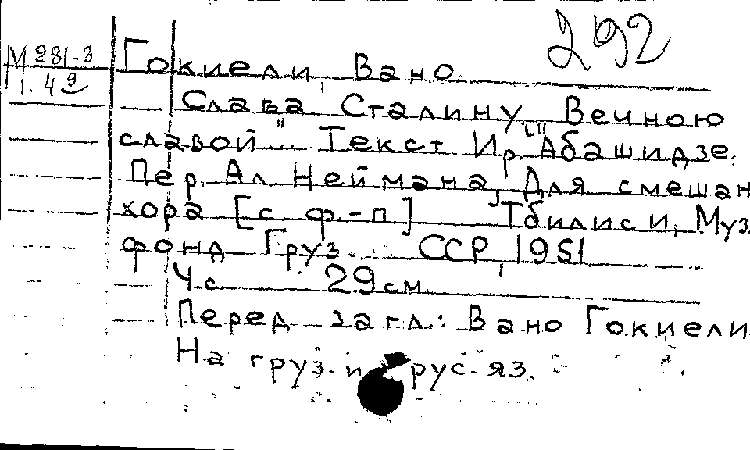 292
М 231-3
1. 49
Гокиели, Вано
Слава Сталину „Вечною
славой"... Текст Ир. Абашидзе.
Пер. Ал. Неймана, Для смешан
хора [с ф.-п] Тбилиси, Муз.
фонд Груз. ССР, 1951
4 с 29 см
Перед загл.: Вано Гокиели
На груз. и рус. яз.